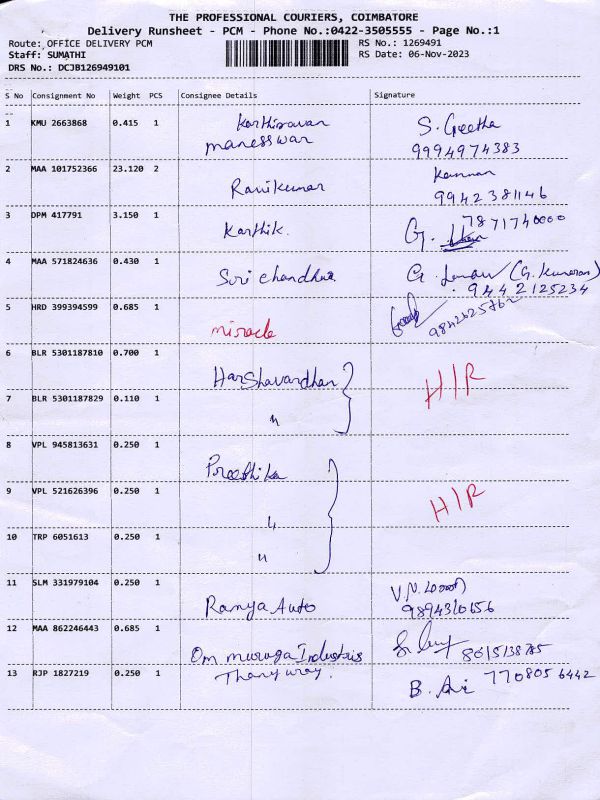 THE PROFESSIONAL COURIERS, COIMBATORE
Delivery Runsheet - PCM - Phone No.:0422-3505555 - Page No.:1
Route: OFFICE DELIVERY PCM RS No.: 1269491
Staff: SUMATHI RS Date: 06-Nov-2023
DRS No.: DCJB126949101
S No Consignment No Weight PCS Consignee Details Signature
1 KMU 2663868 0.415 1 Karthiswan S. Geetha
maneeswar 9994974383
2 MAA 101752366 23.120 2 Ravikumar Kannan
9942381146
3 DPM 417791 3.150 1 Karthik. G. 7871740000
4 MAA 571824636 0.430 1 Sri chandhra G. (G. Kumaran)
9442125234
5 HRD 399394599 0.685 1 miracle
6 BLR 5301187810 0.700 1 Harshavardhan H/R
7 BLR 5301187829 0.110 1 "
8 VPL 945813631 0.250 1 Preethika
9 VPL 521626396 0.250 1 " H/R
10 TRP 6051613 0.250 1 "
11 SLM 331979104 0.250 1 Ramya Auto V.N.
9894310656
12 MAA 862246443 0.685 1 Om muruga Industris
13 RJP 1827219 0.250 1 B. 7708056442